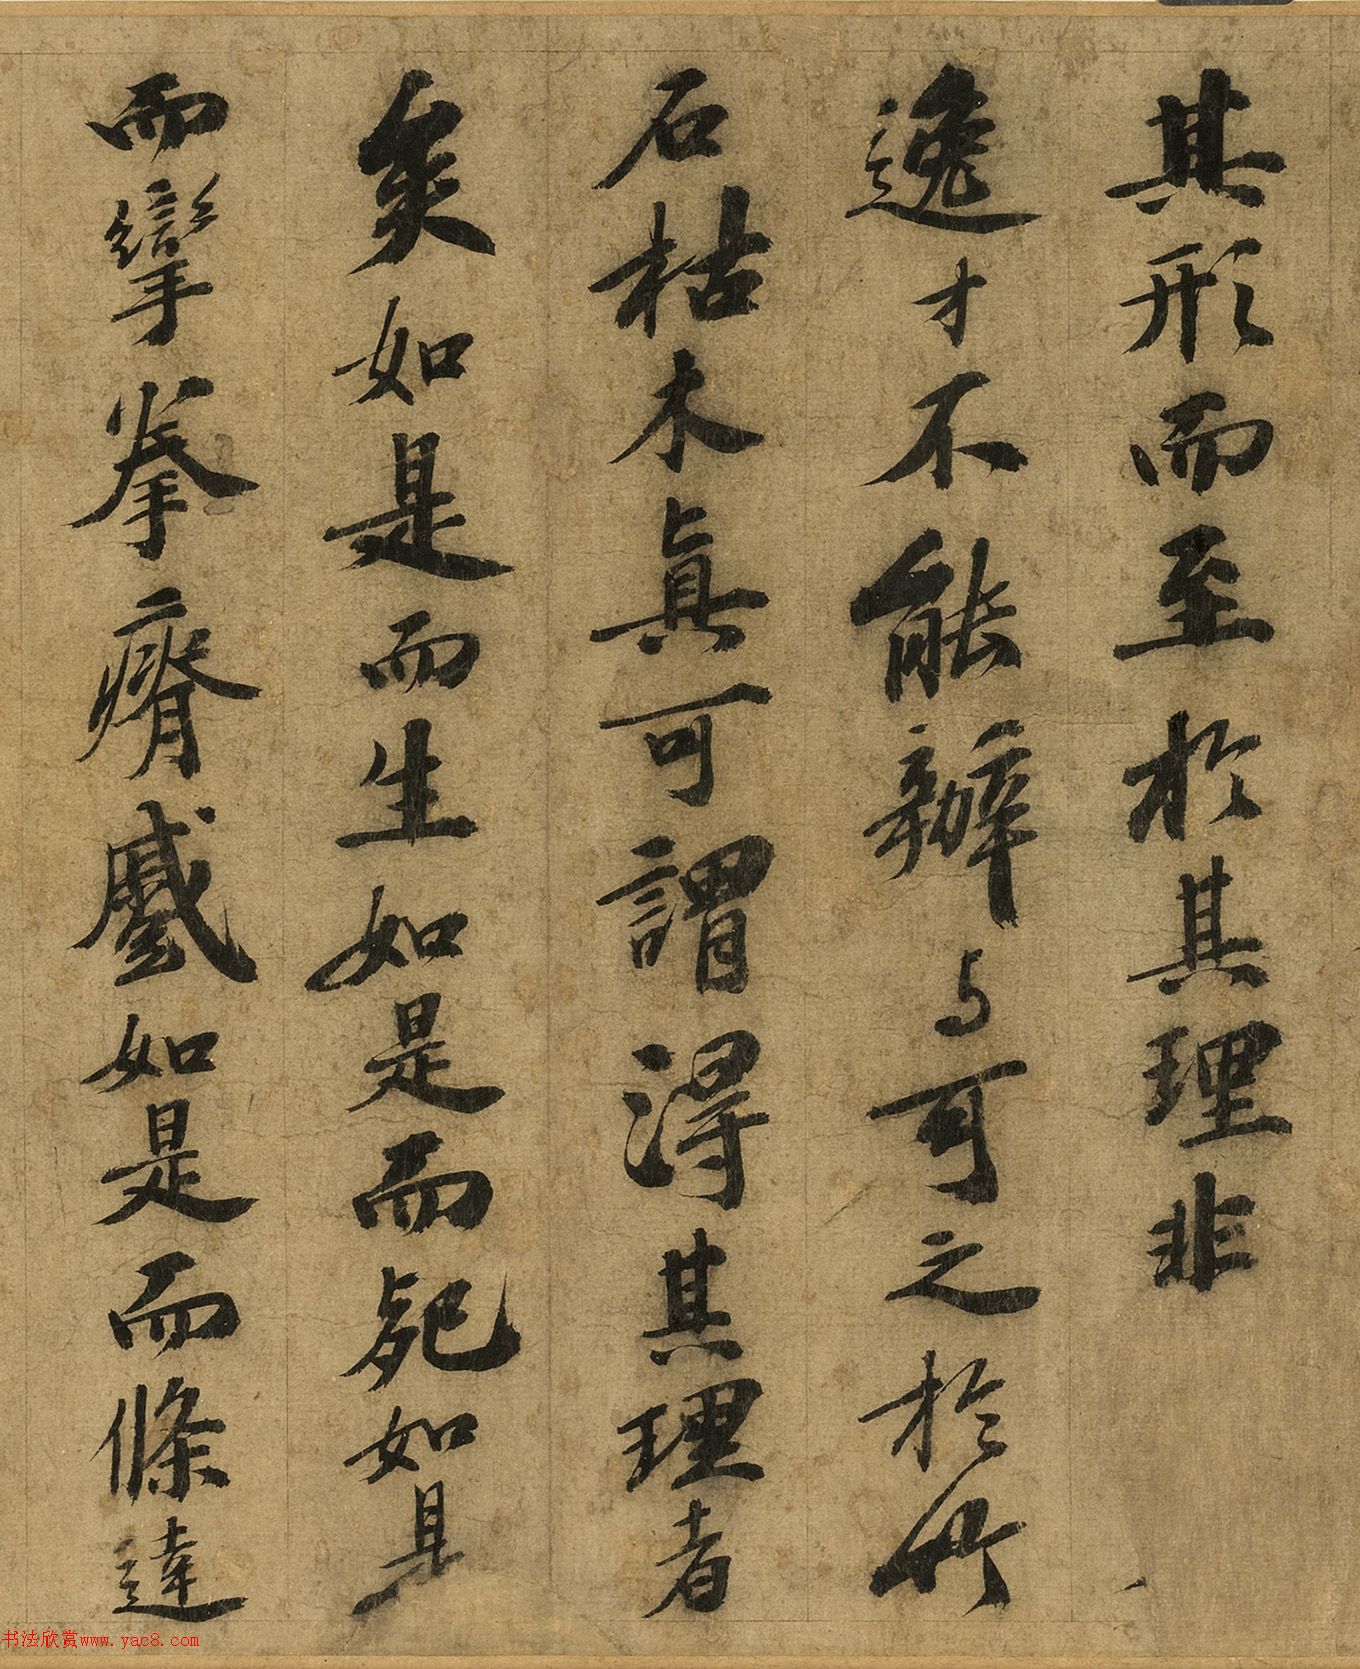 其形而至於其理非
逸才不能辦与可之於竹
石枯木真可謂得其理者
矣如是而生如是而死如是
而攣拳瘠蹙如是而條達
书法欣赏www.yac8.com